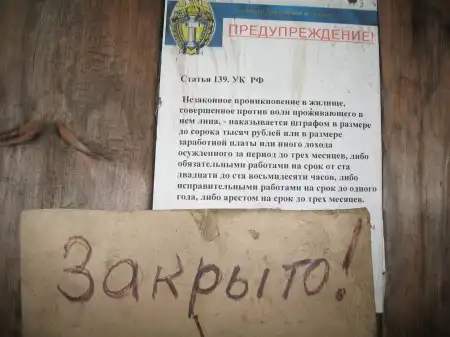 ПРЕДУПРЕЖДЕНИЕ!
Статья 139. УК РФ
Незаконное проникновение в жилище,
совершенное против воли проживающего в
нем лица, - наказывается штрафом в размере
до сорока тысяч рублей или в размере
заработной платы или иного дохода
осужденного за период до трех месяцев, либо
обязательными работами на срок от ста
двадцати до ста восьмидесяти часов, либо
исправительными работами на срок до одного
года, либо арестом на срок до трех месяцев.
Закрыто!